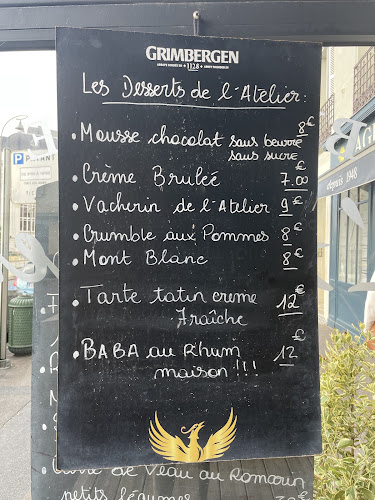 GRIMBERGEN
1128
Les Desserts de l'Atelier:
• Mousse chocolat sans beurre 8€
sans sucre
• Crème Bruleé 7.00€
• Vacherin de l'Atelier 9€
• Crumble aux Pommes 8€
• Mont Blanc 8€
• Tarte tatin creme 12€
Fraîche
• BABA au Rhum 12€
maison !!!
PAYANT
depuis 1948
de Veau au Romarin
petits légumes